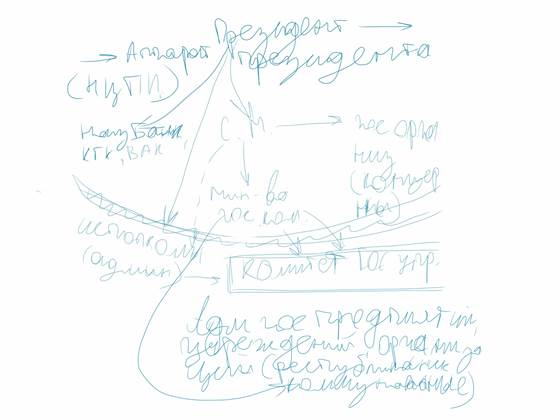 Президент
Аппарат президента
(НЦПИ)
нац Банк,
КГК, ВАК
С.М.
гос орга
низ
(концер
ны)
мин-во
гос ком
исполкомы
(админ)
комитет гос упр.
Адм гос предприятий,
учреждений организа
ций (республиканские
коммунальные)